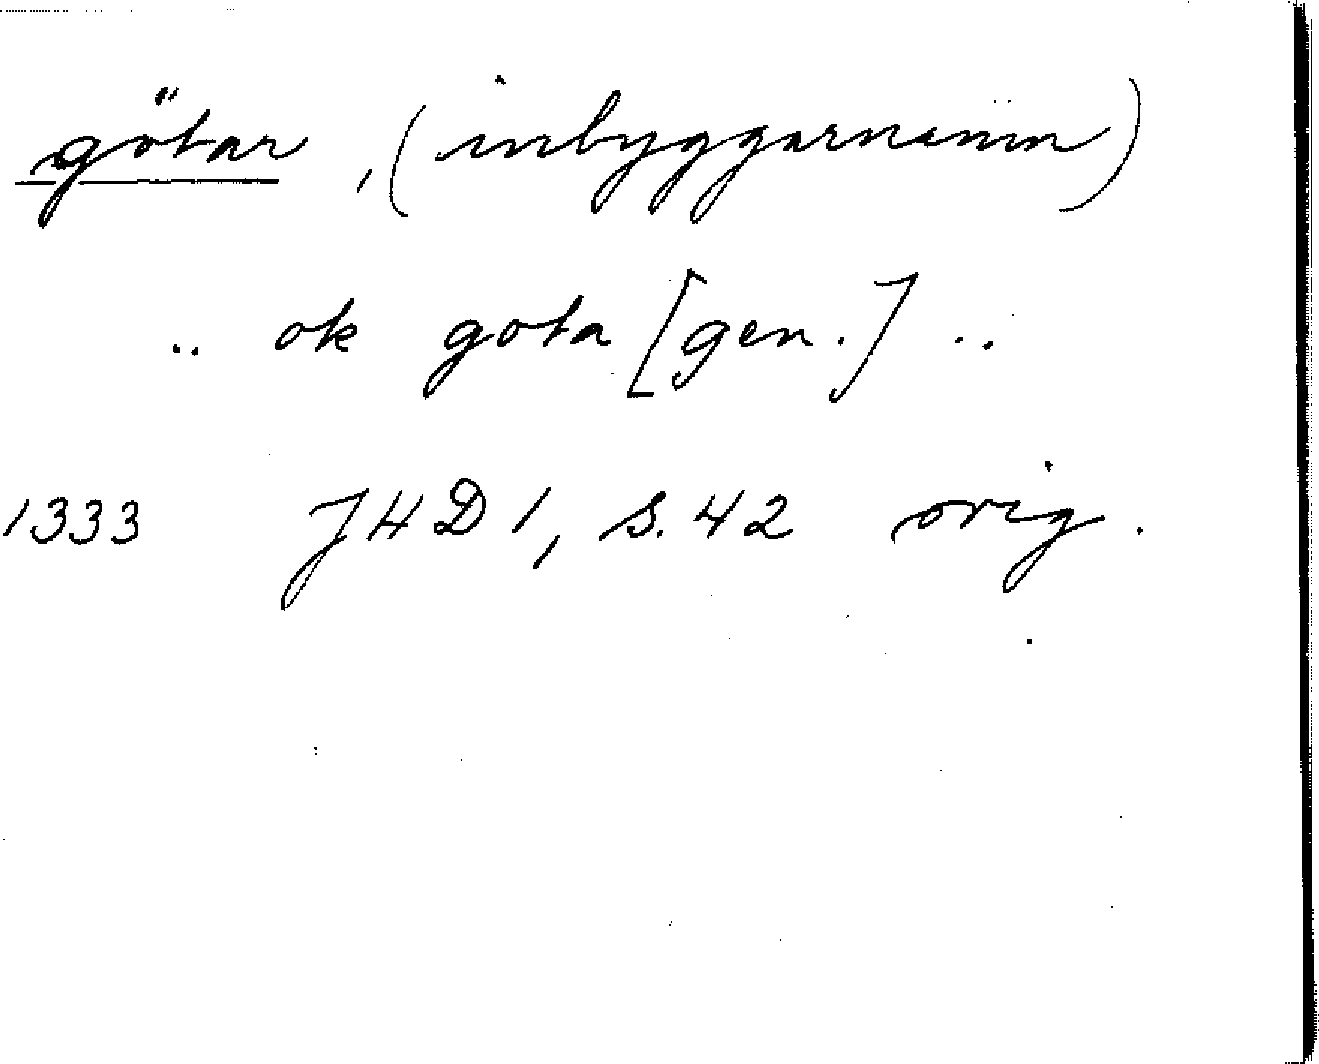 götar, (inbyggarnamn)
.. ok gota [gen.] ..
1333 JHD 1, s. 42 orig.